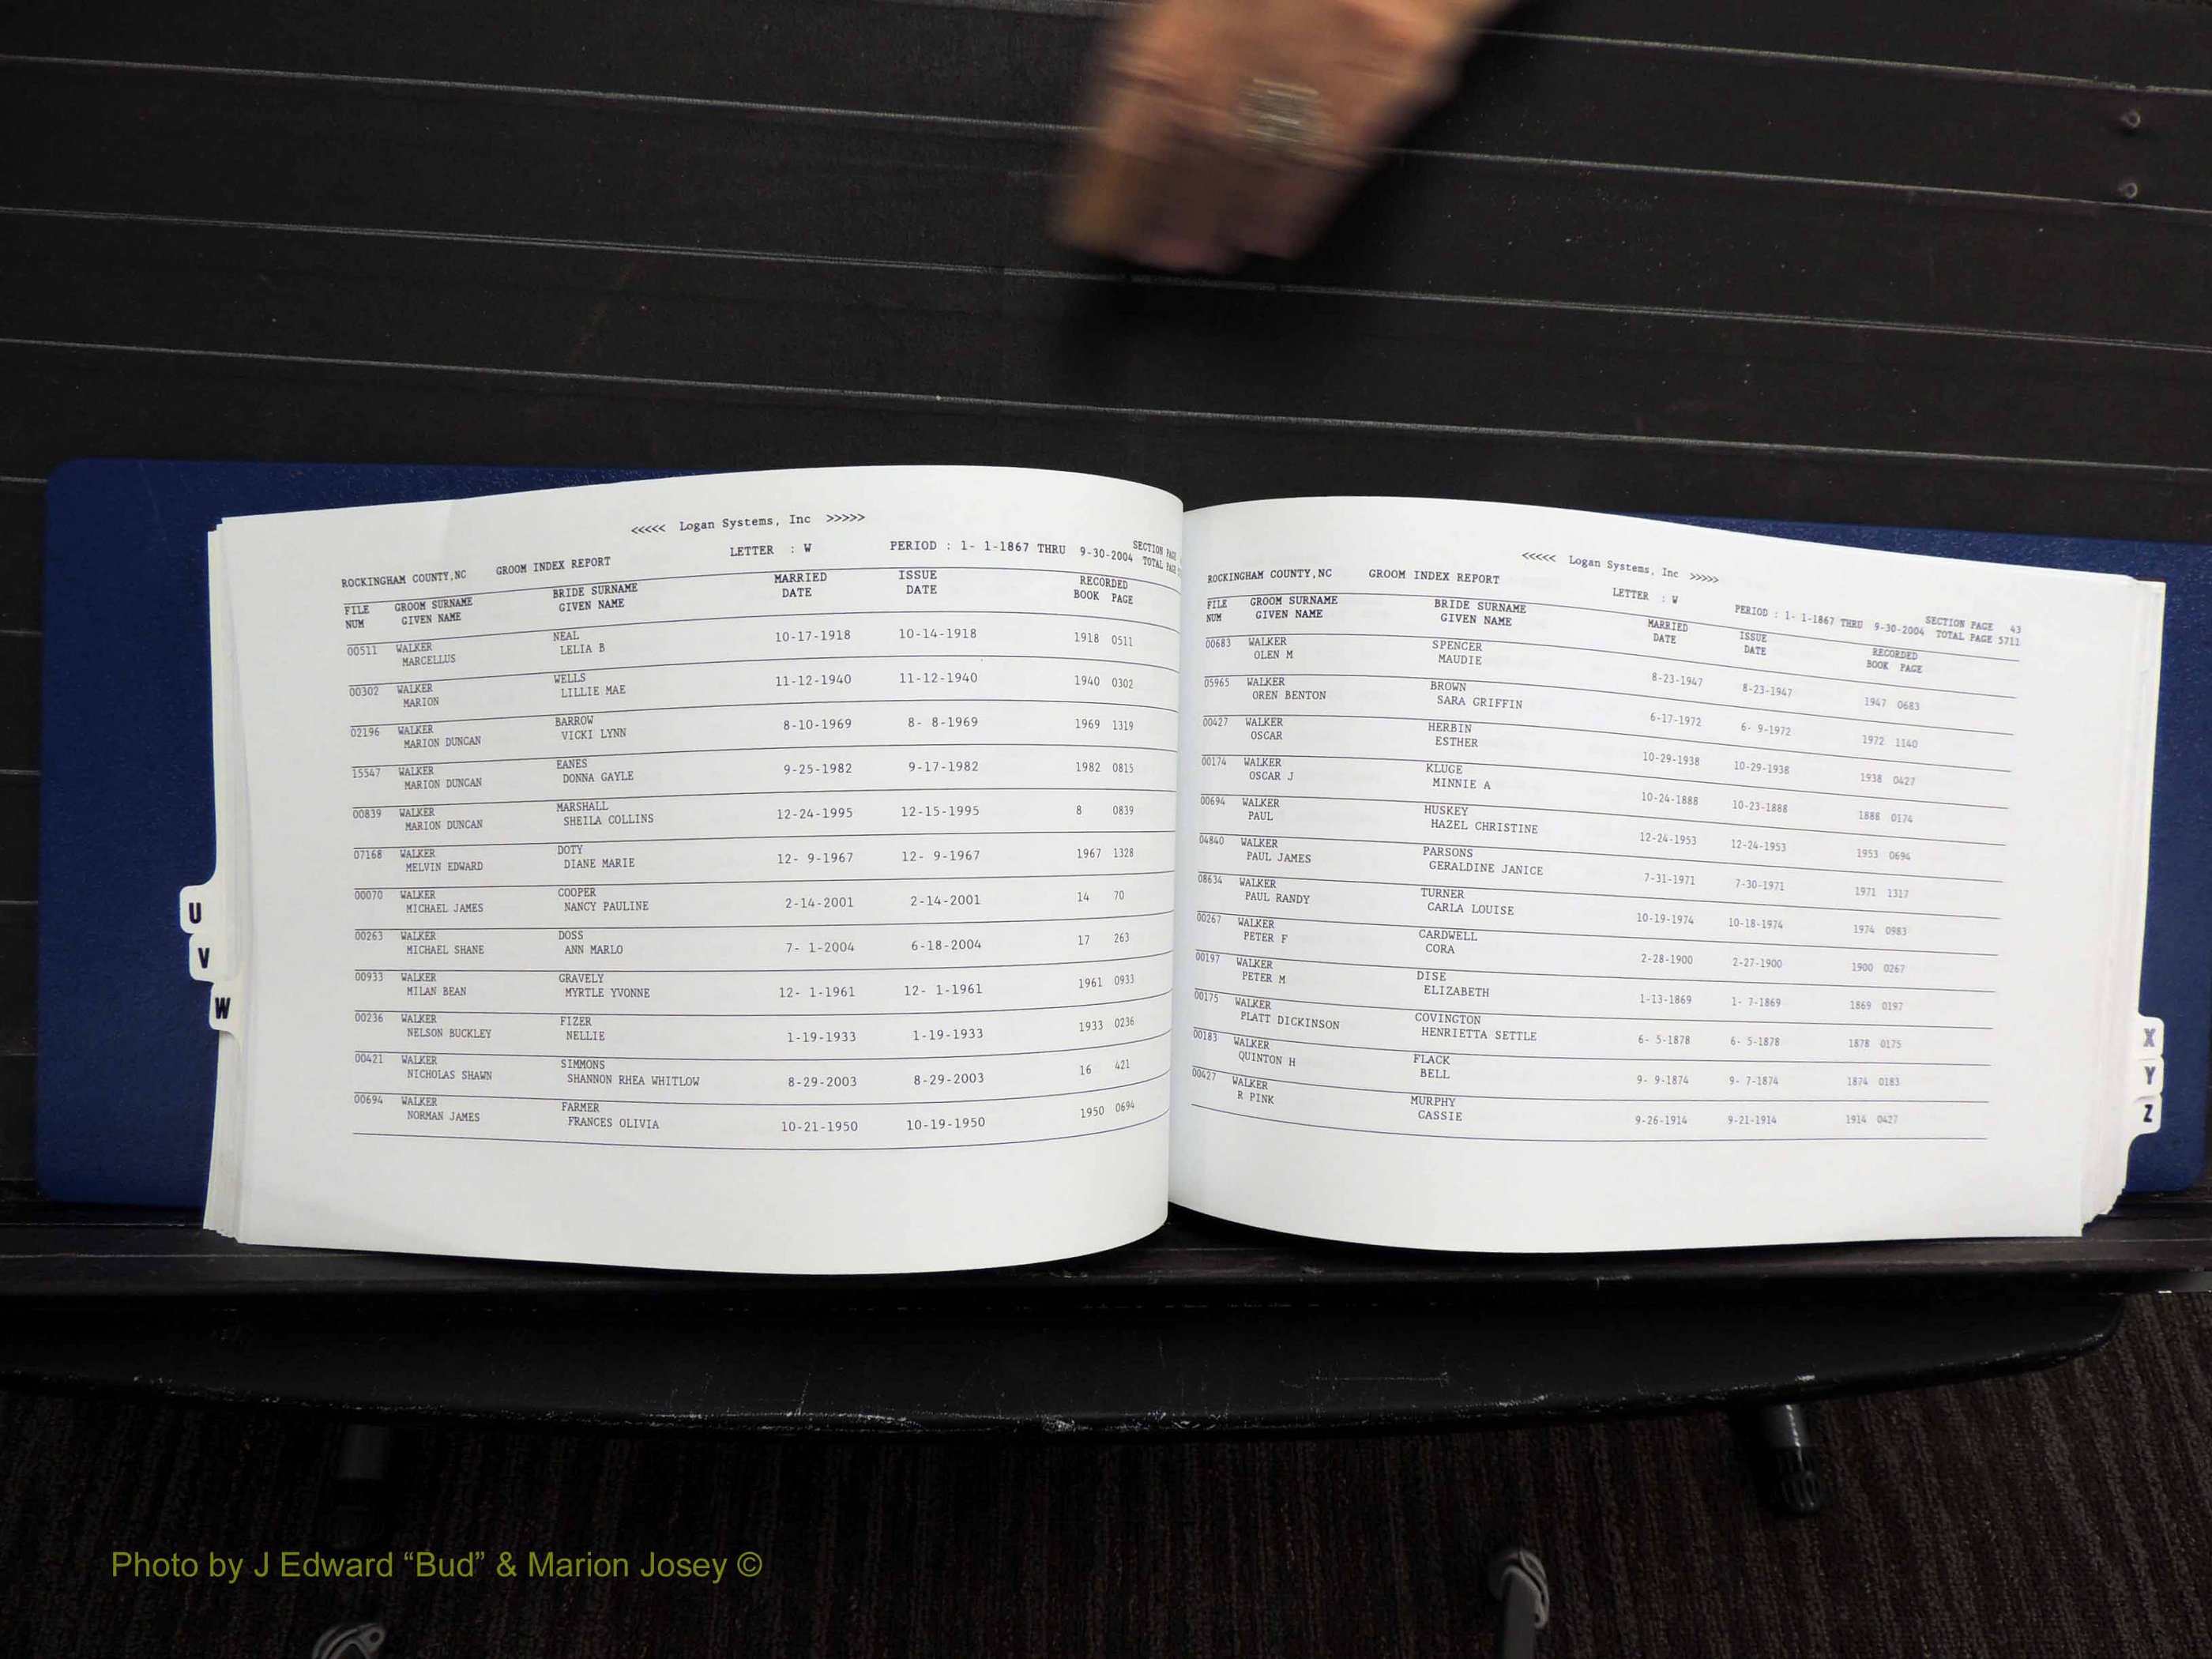 <<<<< Logan Systems, Inc >>>>>
ROCKINGHAM COUNTY,NC GROOM INDEX REPORT LETTER : W PERIOD : 1- 1-1867 THRU 9-30-2004 SECTION PAGE
TOTAL PAGE
FILE GROOM SURNAME BRIDE SURNAME MARRIED ISSUE RECORDED
NUM GIVEN NAME GIVEN NAME DATE DATE BOOK PAGE
00511 WALKER NEAL 10-17-1918 10-14-1918 1918 0511
MARCELLUS LELIA B
00302 WALKER WELLS 11-12-1940 11-12-1940 1940 0302
MARION LILLIE MAE
02196 WALKER BARROW 8-10-1969 8- 8-1969 1969 1319
MARION DUNCAN VICKI LYNN
15547 WALKER EANES 9-25-1982 9-17-1982 1982 0815
MARION DUNCAN DONNA GAYLE
00839 WALKER MARSHALL 12-24-1995 12-15-1995 8 0839
MARION DUNCAN SHEILA COLLINS
07168 WALKER DOTY 12- 9-1967 12- 9-1967 1967 1328
MELVIN EDWARD DIANE MARIE
00070 WALKER COOPER 2-14-2001 2-14-2001 14 70
MICHAEL JAMES NANCY PAULINE
00263 WALKER DOSS 7- 1-2004 6-18-2004 17 263
MICHAEL SHANE ANN MARLO
00933 WALKER GRAVELY 12- 1-1961 12- 1-1961 1961 0933
MILAN BEAN MYRTLE YVONNE
00236 WALKER FIZER 1-19-1933 1-19-1933 1933 0236
NELSON BUCKLEY NELLIE
00421 WALKER SIMMONS 8-29-2003 8-29-2003 16 421
NICHOLAS SHAWN SHANNON RHEA WHITLOW
00694 WALKER FARMER 10-21-1950 10-19-1950 1950 0694
NORMAN JAMES FRANCES OLIVIA
U
V
W
<<<<< Logan Systems, Inc >>>>>
ROCKINGHAM COUNTY,NC GROOM INDEX REPORT LETTER : W PERIOD : 1- 1-1867 THRU 9-30-2004 SECTION PAGE 43
TOTAL PAGE 5711
FILE GROOM SURNAME BRIDE SURNAME MARRIED ISSUE RECORDED
NUM GIVEN NAME GIVEN NAME DATE DATE BOOK PAGE
00683 WALKER SPENCER 8-23-1947 8-23-1947 1947 0683
OLEN M MAUDIE
05965 WALKER BROWN 6-17-1972 6- 9-1972 1972 1140
OREN BENTON SARA GRIFFIN
00427 WALKER HERBIN 10-29-1938 10-29-1938 1938 0427
OSCAR ESTHER
00174 WALKER KLUGE 10-24-1888 10-23-1888 1888 0174
OSCAR J MINNIE A
00694 WALKER HUSKEY 12-24-1953 12-24-1953 1953 0694
PAUL HAZEL CHRISTINE
04840 WALKER PARSONS 7-31-1971 7-30-1971 1971 1317
PAUL JAMES GERALDINE JANICE
08634 WALKER TURNER 10-19-1974 10-18-1974 1974 0983
PAUL RANDY CARLA LOUISE
00267 WALKER CARDWELL 2-28-1900 2-27-1900 1900 0267
PETER F CORA
00197 WALKER DISE 1-13-1869 1- 7-1869 1869 0197
PETER M ELIZABETH
00175 WALKER COVINGTON 6- 5-1878 6- 5-1878 1878 0175
PLATT DICKINSON HENRIETTA SETTLE
00183 WALKER FLACK 9- 9-1874 9- 7-1874 1874 0183
QUINTON H BELL
00427 WALKER MURPHY 9-26-1914 9-21-1914 1914 0427
R PINK CASSIE
X
Y
Z
Photo by J Edward “Bud” & Marion Josey ©